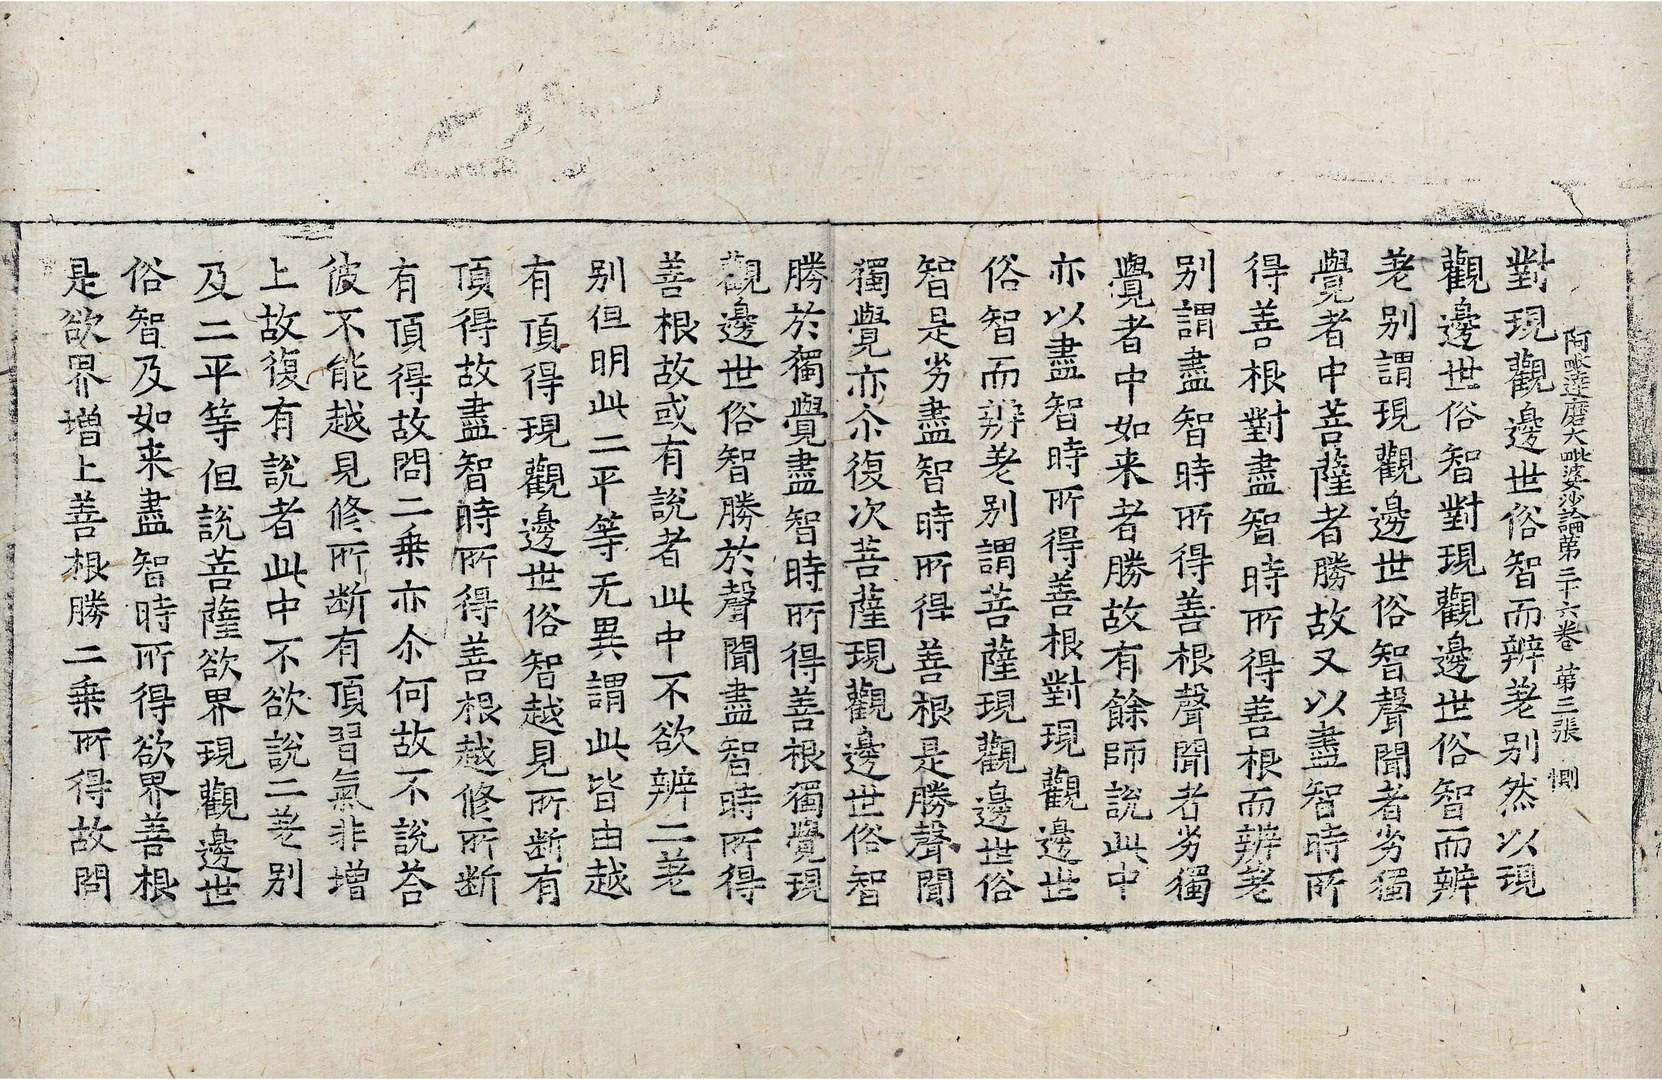 阿毗達磨大毗婆沙論苐三十六卷 苐三張 惻
對現觀邊世俗智而辨差別然以現
觀邊世俗智對現觀邊世俗智而辨
差別謂現觀邊世俗智聲聞者劣獨
覺者中菩薩者勝故又以盡智時所
得善根對盡智時所得善根而辨差
別謂盡智時所得善根聲聞者劣獨
覺者中如来者勝故有餘師說此中
亦以盡智時所得善根對現觀邊世
俗智而辨差別謂菩薩現觀邊世俗
智是劣盡智時所得善根是勝聲聞
獨覺亦尒復次菩薩現觀邊世俗智
勝於獨覺盡智時所得善根獨覺現
觀邊世俗智勝於聲聞盡智時所得
善根故或有說者此中不欲辨二差
別但明此二平等无異謂此皆由越
有頂得現觀邊世俗智越見所断有
頂得故盡智時所得善根越修所断
有頂得故問二乗亦尒何故不說荅
彼不能越見修所断有頂習氣非增
上故復有說者此中不欲說二差別
及二平等但說菩薩欲界現觀邊世
俗智及如来盡智時所得欲界善根
是欲界增上善根勝二乗所得故問